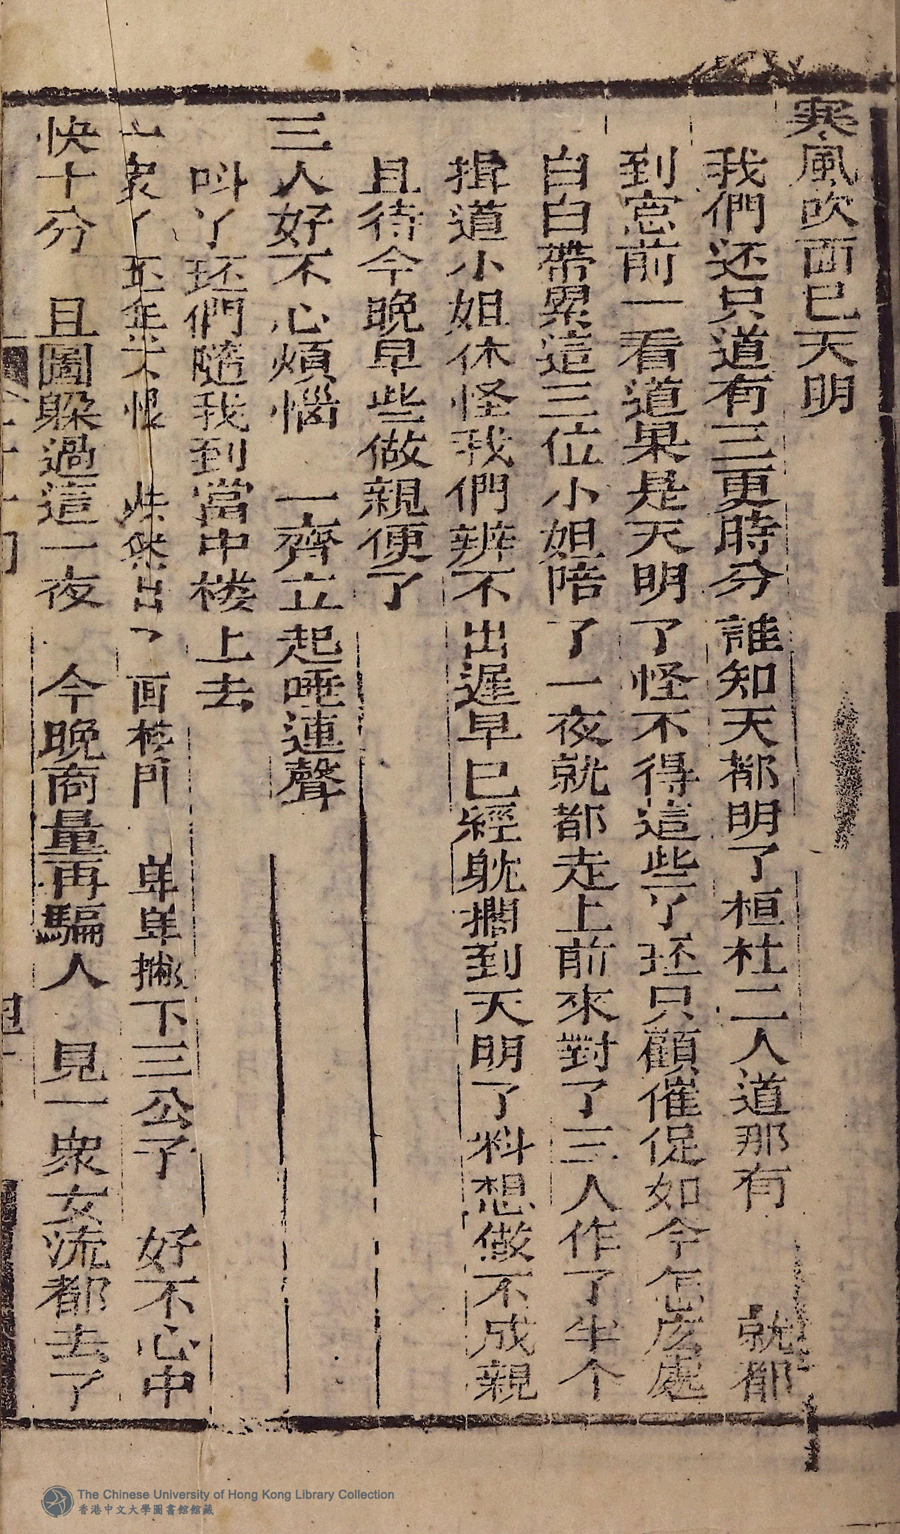 寒風吹面已天明
我們还只道有三更時分誰知天都明了桓杜二人道那有就都
到窓前一看道果是天明了怪不得這些了环只顧催促如今怎庅處
白白帶累這三位小姐陪了一夜就都走上前來對了三人作了半个
揖道小姐休怪我們辨不出遲早已經躭擱到天明了料想做不成親
且待今晚早些做親便了
三人好不心煩惱　一齊立起唾連聲
呌丫环們隨我到當中楼上去
衆丫环年　恨　出了　面楼門　単単撇下三公子　好不心中
快十分　且圖躱過這一夜　今晚商量再騙人　見一衆女流都去了
The Chinese University of Hong Kong Library Collection
香港中文大學圖書館館藏